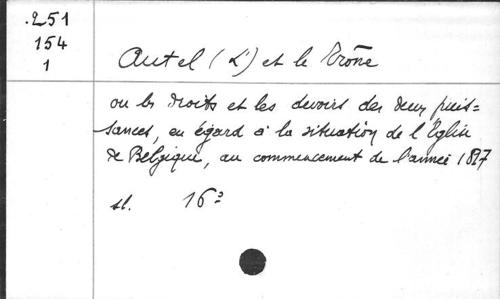 .251
154
1
Autel (L') et le Trône
ou les droits et les devoirs des deux puis=
sances, eu égard à la situation de l'Eglise
de Belgique, au commencement de l'année 1827
sl. 16°